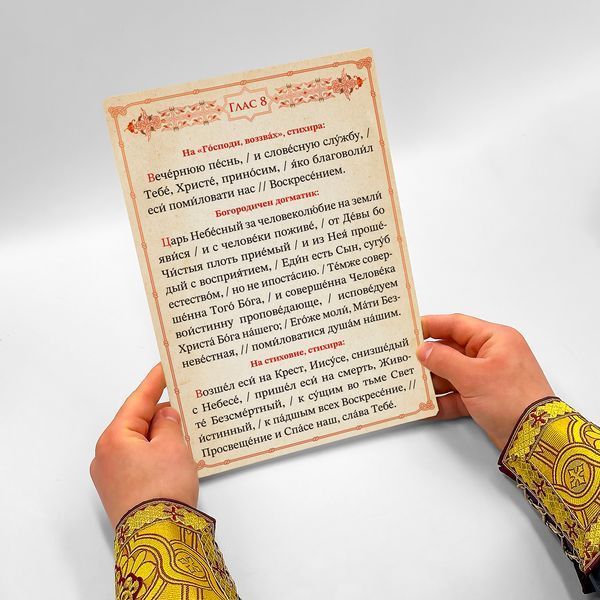 Глас 8
На «Го́споди, воззва́х», стихира:
Вече́рнюю пе́снь, / и слове́сную слу́жбу, /
Тебе́, Христе́, прино́сим, / я́ко благоволи́л
еси́ поми́ловати нас // Воскресе́нием.
Богородичен догматик:
Царь Небе́сный за человеколю́бие на земли́
яви́ся / и с челове́ки поживе́, / от Де́вы бо
Чи́стыя плоть прие́мый / и из Нея́ проше́-
дый с восприя́тием, / Еди́н есть Сын, сугу́б
естество́м, / но не ипоста́сию. / Те́мже совер-
ше́нна Того́ Бо́га, / и соверше́нна Челове́ка
вои́стинну пропове́дающе, / испове́дуем
Христа́ Бо́га на́шего; / Его́же моли́, Ма́ти Без-
неве́стная, // поми́ловатися душа́м на́шим.
На стиховне, стихира:
Возше́л еси́ на Крест, Иису́се, снизше́дый
с Небесе́, / прише́л еси́ на смерть, Живо-
те́ Безсме́ртный, / к су́щим во тьме Свет
и́стинный, / к па́дшым всех Воскресе́ние, //
Просвеще́ние и Спа́се наш, сла́ва Тебе́.